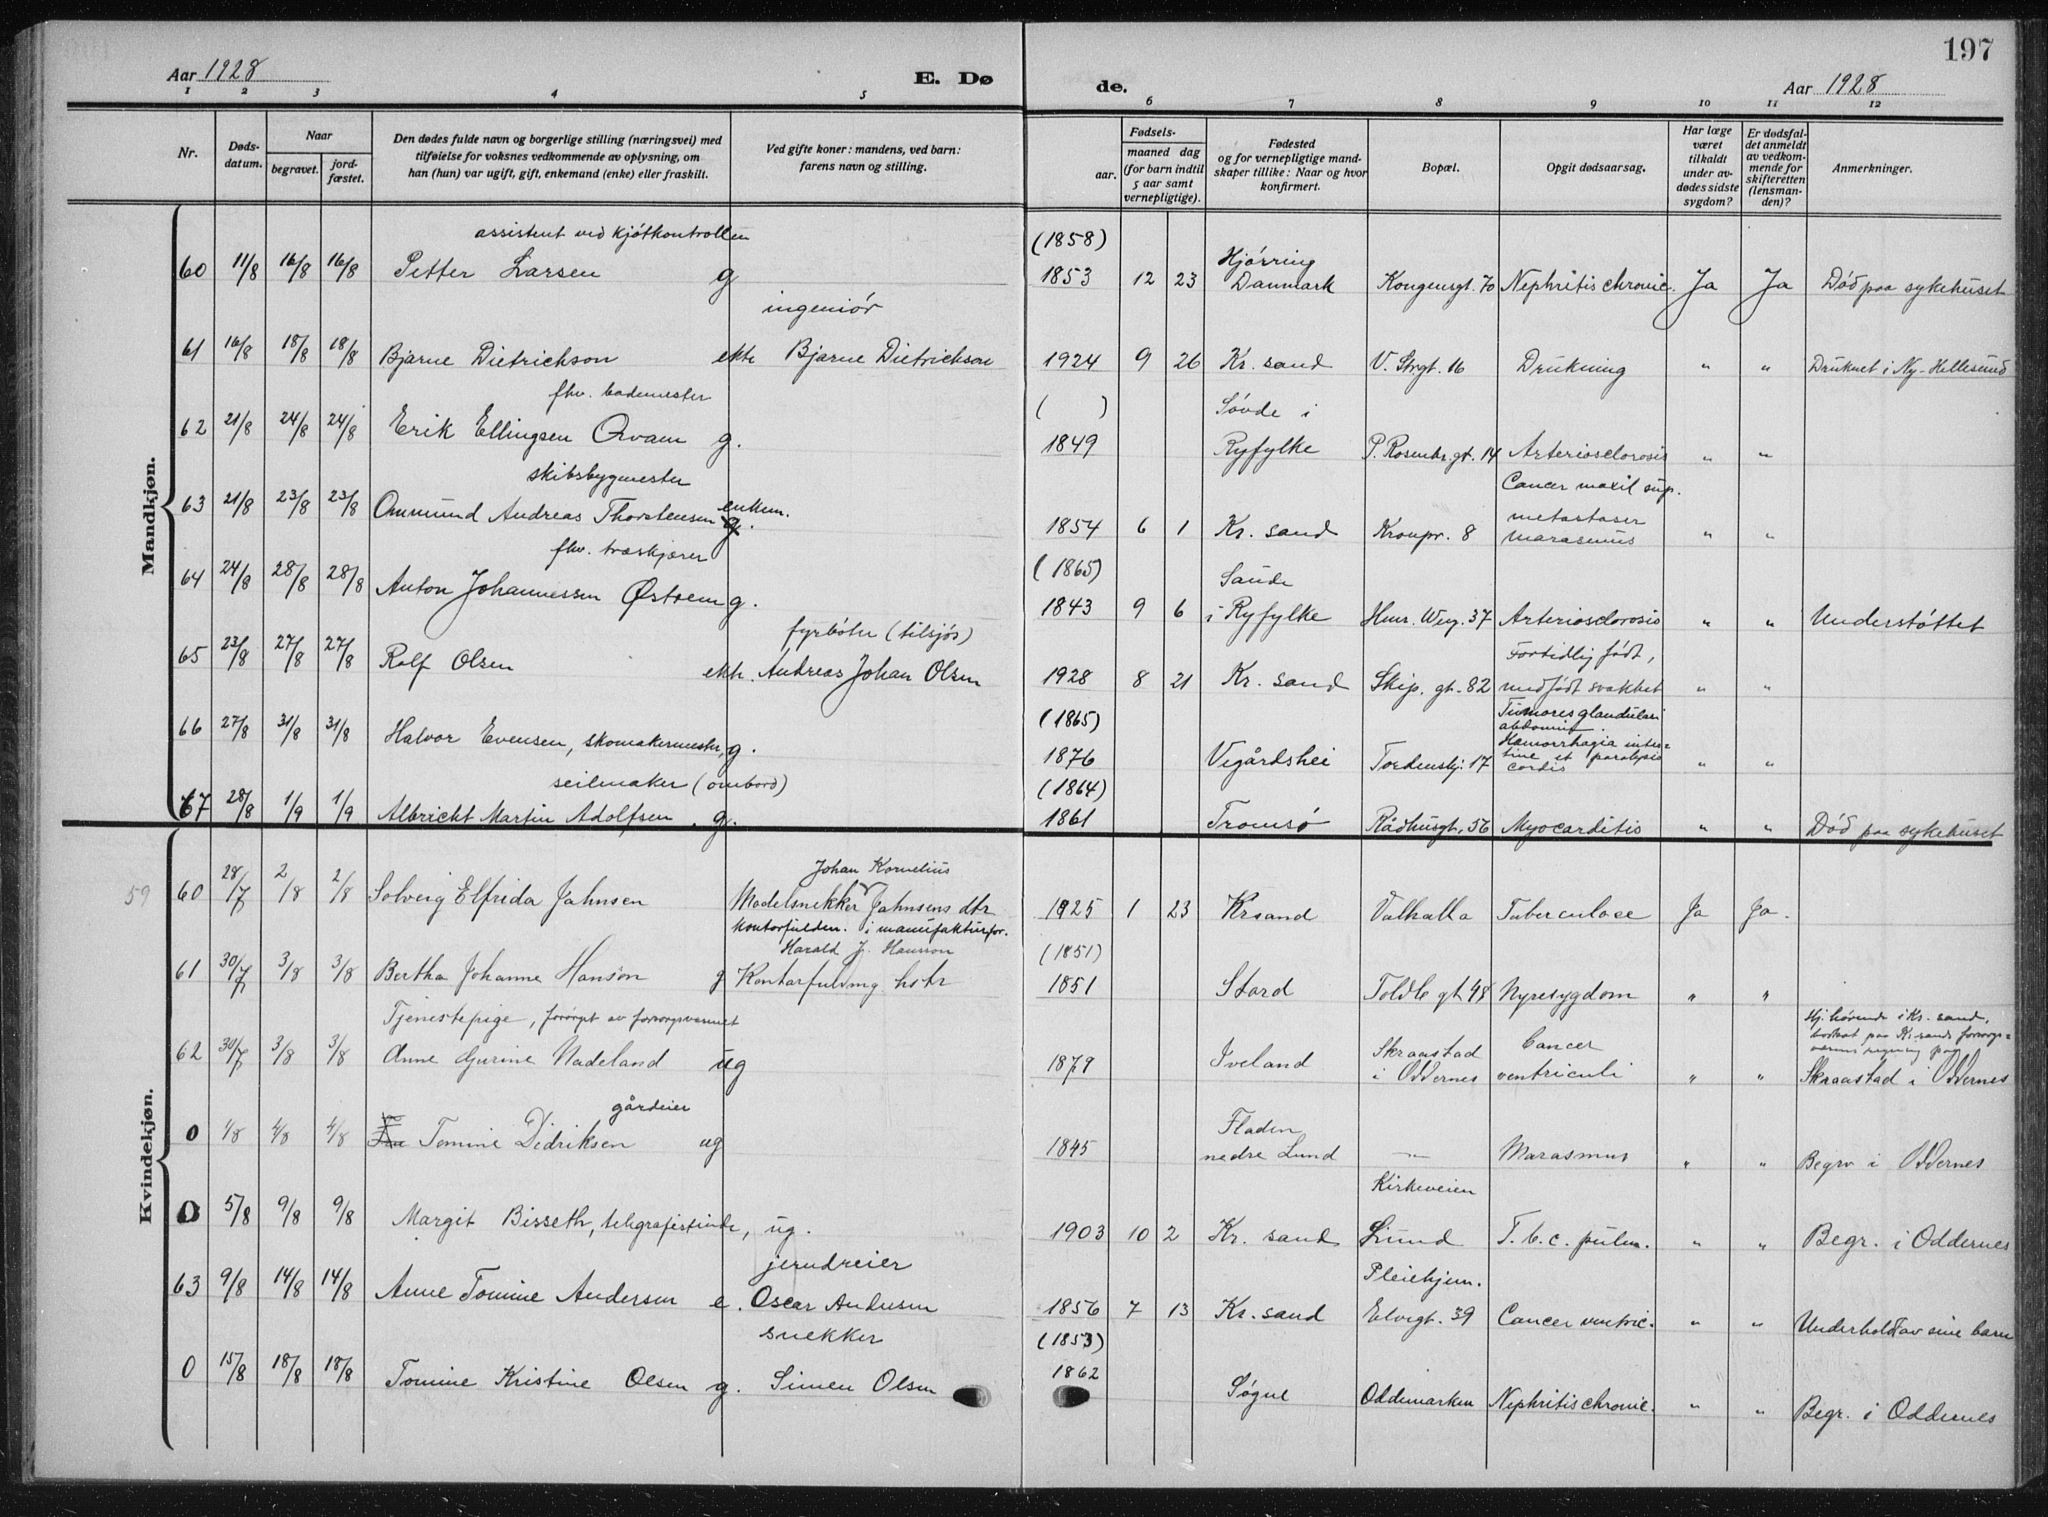 197
Aar 1928
E. Dø
de.
Aar 1928
1 2 3 4 5 6 7 8 9 10 11 12
Nr.
Døds-
datum.
Naar
begravet.
jord-
fæstet.
Den dødes fulde navn og borgerlige stilling (næringsvei) med
tilføielse for voksnes vedkommende av oplysning, om
han (hun) var ugift, gift, enkemand (enke) eller fraskilt.
Ved gifte koner: mandens, ved barn:
farens navn og stilling.
Fødsels-
aar.
maaned dag
(for barn indtil
5 aar samt
vernepligtige).
Fødested
og for vernepligtige mand-
skaper tillike: Naar og hvor
konfirmert.
Bopæl.
Opgit dødsaarsag.
Har læge
været
tilkaldt
under av-
dødes sidste
sygdom?
Er dødsfal-
det anmeldt
av vedkom-
mende for
skifteretten
(lensman-
den)?
Anmerkninger.
Mandkjøn.
assistent ved kjøtkontrollen (1858) Hjørring
60 11/8 16/8 16/8 Petter Larsen g 1853 12 23 Danmark Kongensgt. 70 Nephritis chronic. Ja Ja Død paa sykehuset
ingeniør
61 16/8 18/8 18/8 Bjarne Dietrichson ekte Bjarne Dietrichson 1924 9 26 Kr. sand V. Strgt. 16 Drukning " " Druknet i Ny-Hellesund
fhv. bademester ( ) Søvde i
62 21/8 24/8 24/8 Erik Ellingsen Orvam g. 1849 Ryfylke P. Rosenkr. gt. 14 Arteriosclorosis " "
skibsbygmester Cancer maxil sup.
63 21/8 23/8 23/8 Ommund Andreas Thorstensen enkem. g. 1854 6 1 Kr. sand Kronpr. 8 metastaser
marasmus " "
fhv. træskjærer (1865) Saude
64 24/8 28/8 28/8 Anton Johannessen Østrem g. 1843 9 6 i Ryfylke Henr. Werg. 37 Arteriosclorosis " " Understøttet
fyrbøter (tilsjøs) Fortidlig født,
65 23/8 27/8 27/8 Rolf Olsen ekte. Andreas Johan Olsen 1928 8 21 Kr. sand Skip. gt. 82 medfødt svakhet " "
(1865) Tumores glandulari
abdomin.
66 27/8 31/8 31/8 Halvor Evensen, skomakermester, g. 1876 Vegårdshei Tordenskj. 17 Hæmorrhagia intes-
tine et paralysis
cordis " "
seilmaker (ombord) (1864)
67 28/8 1/9 1/9 Albricht Martin Adolfsen g. 1861 Tromsø Rådhusgt. 56 Myocarditis " " Død paa sykehuset
Kvindekjøn.
Johan Kornelius
59 60 28/7 2/8 2/8 Solveig Elfrida Jahnsen Modelsnekker Jahnsens dtr 1925 1 23 Krsand Valhalla Tuberculose Ja Ja.
kontorfuldm. i manufakturfor.
Harald J. Hansson (1851)
61 30/7 3/8 3/8 Bertha Johanne Hanson g Kontorfuldmg hstr 1851 Stord Toldb gt 48 Nyresygdom " "
Tjenestepige, forsørgt av forsorgsvæsenet Skraastad Cancer Hj. hørende i Kr. sand,
62 30/7 3/8 3/8 Anne Gurine Nadeland ug 1879 Iveland i Oddernes ventriculi " " Skraastad i Oddernes
gårdeier Fladen
0 4/8 4/8 4/8 Tomine Didriksen ug 1845 nedre Lund — Marasmus " " Begrv i Oddernes
Kirkeveien
0 5/8 9/8 9/8 Margit Bisseth, telegrafistinde, ug. 1903 10 2 Kr. sand Lund T. b. c. pulm. " " Begr. i Oddernes
jerndreier Pleiehjem.
63 9/8 14/8 14/8 Anne Tomine Andersen e. Oscar Andersen 1856 7 13 Kr. sand Elvegt. 39 Cancer ventric. " " Underholdt av sine barn
snekker (1853)
0 15/8 18/8 18/8 Tomine Kristine Olsen g. Simen Olsen 1862 Søgne Oddemarken Nephritis chronic. " " Begr. i Oddernes